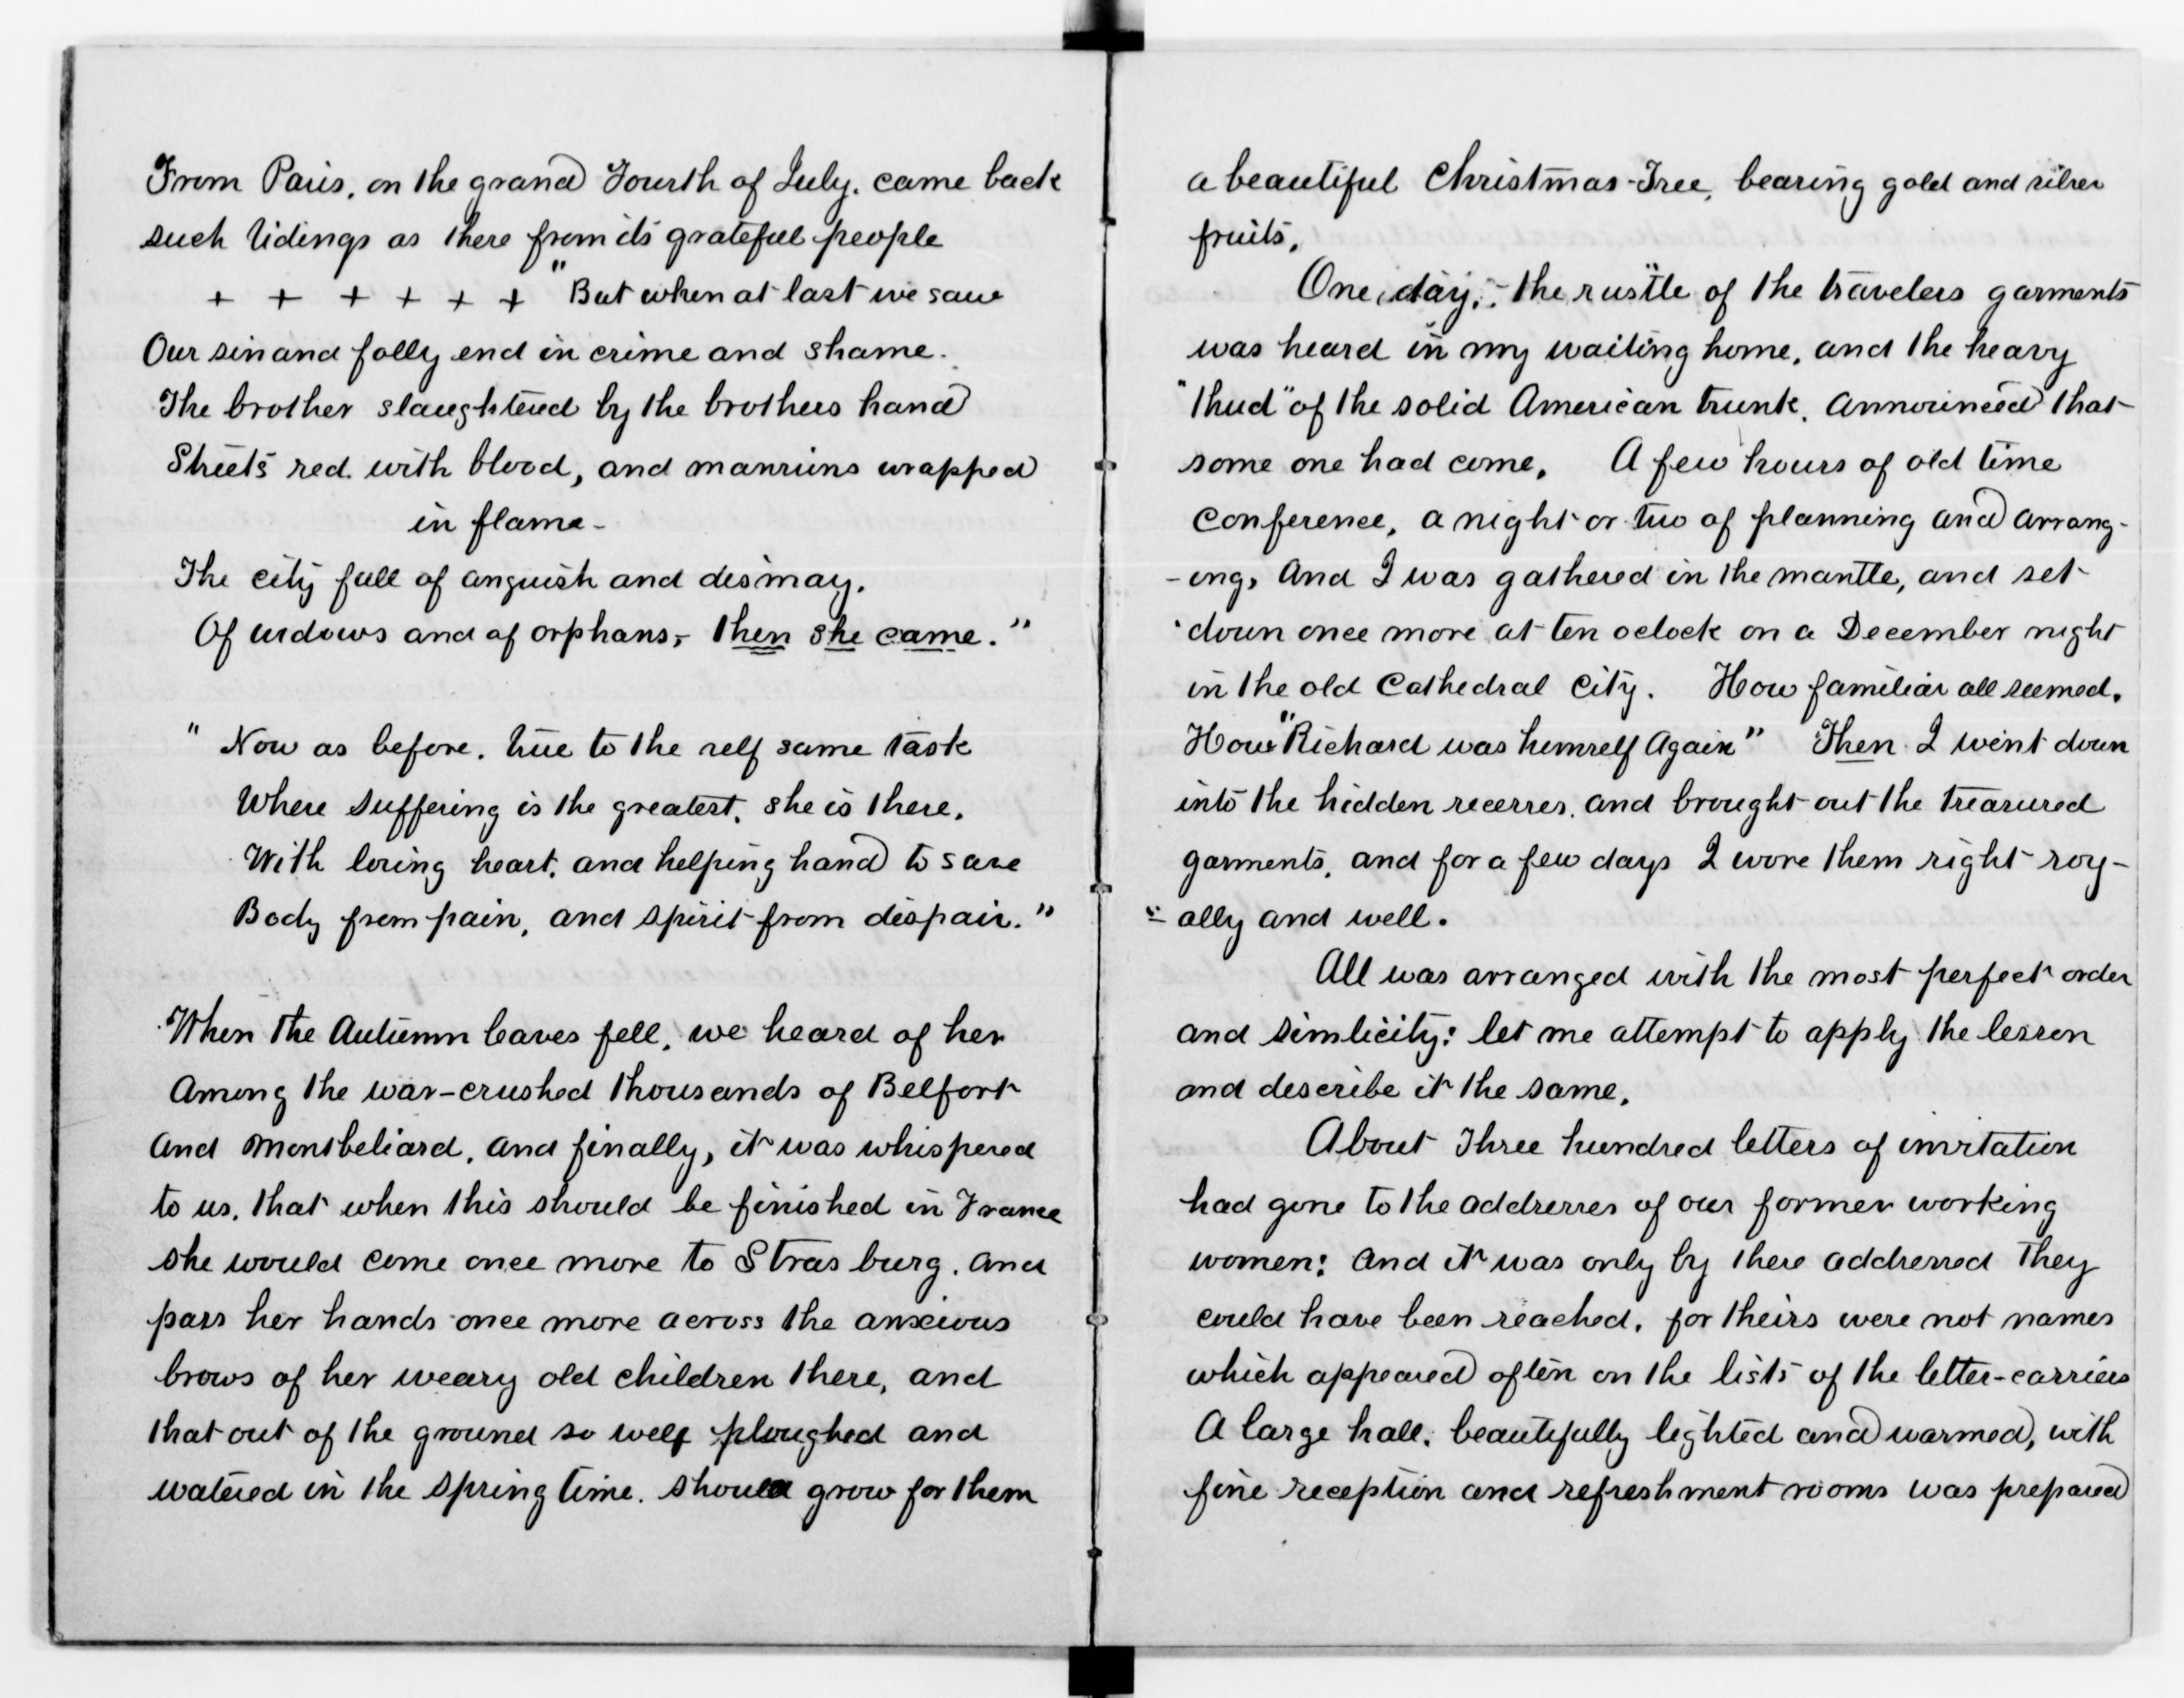 From Paris, on the grand Fourth of July. came back
such tidings as these from its grateful people
+ + + + + + "But when at last we saw
Our sin and folly end in crime and shame.
The brother slaughtered by the brothers hand
Streets red. with blood, and mansions wrapped
in flame-
The city full of anguish and dismay.
Of widows and of orphans,- then she came."
" Now as before. true to the self same task
Where suffering is the greatest, she is there.
With loving heart, and helping hand to save
Body from pain, and spirit from dispair."
When the Autumn leaves fell, we heard of her
Among the war-crushed thousands of Belfort
and Montbeliard, and finally, it was whispered
to us, that when this should be finished in France
she would come once more to Stras burg. and
pass her hands once more across the anxious
brows of her weary old children there, and
that out of the ground so well ploughed and
watered in the spring time. should grow for them
a beautiful Christmas-Tree, bearing gold and silver
fruits,
One day,- the rustle of the travelers garments
was heard in my waiting home, and the heavy
"thud" of the solid American trunk, announced that
some one had come. A few hours of old time
conference, a night or two of planning and arrang-
-ing, And I was gathered in the mantle, and set
down once more at ten oclock on a December night
in the old Cathedral City. How familiar all seemed.
How "Richard was himself Again" Then I went down
into the hidden recesses. and brought out the treasured
garments, and for a few days I wore them right roy-
- ally and well.
All was arranged with the most perfect order
and simlicity: let me attempt to apply the lesson
and describe it the same.
About Three hundred letters of invitation
had gone to the addresses of our former working
women: and it was only by these addressed they
could have been reached, for theirs were not names
which appeared often on the lists of the letter-carriers
A large hall, beautifully lighted and warmed, with
fine reception and refreshment rooms was prepared